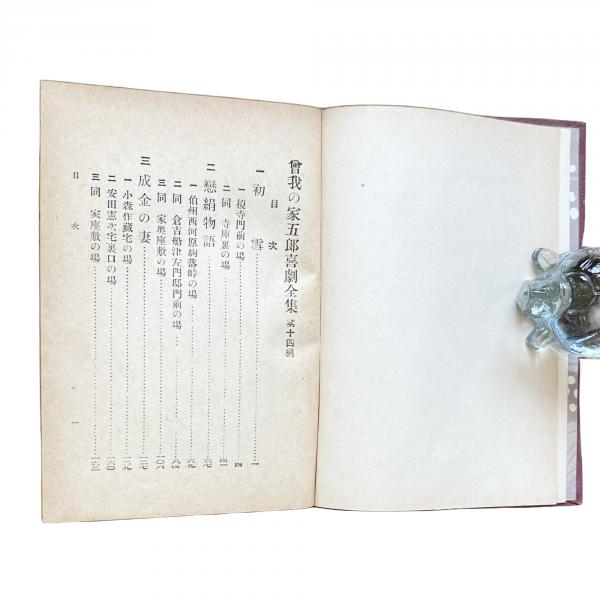 曾我の家五郎喜劇全集 第十四編
目次
一 初雪……一
一 榎寺門前の場……四
二 同 寺庫裏の場……四一
二 戀絹物語……六七
一 伯州西河原駒落峠の場……六九
二 同 倉吉船津左門邸門前の場……八四
三 同 家奥座敷の場……一〇六
三 成金の妻……一三七
一 小森作藏宅の場……一三九
二 安田憲次宅裏口の場……一六〇
三 同 家座敷の場……一六三
目次
一